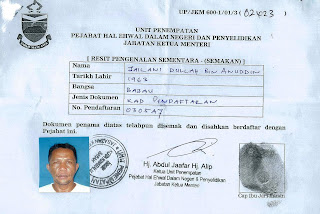 UP/JKM 600-1/01/3 (02423)
UNIT PENEMPATAN
PEJABAT HAL EHWAL DALAM NEGERI DAN PENYELIDIKAN
JABATAN KETUA MENTERI
[ RESIT PENGENALAN SEMENTARA - (SEMAKAN) ]
Nama JAILANI DULLAH BIN ANUDDIN
Tarikh Lahir 1963
Bangsa BAJAU
Jenis Dokumen KAD PENDAFTARAN
No. Pendaftaran 030547
Dokumen penama diatas telahpun disemak dan disahkan berdaftar dengan
Pejabat ini.
Hj. Abdul Jaafar Hj. Alip
Ketua Unit Penempatan
Pejabat Hal Ehwal Dalam Negeri & Penyelidikan
Jabatan Ketua Menteri
Cap Ibu Jari Kanan